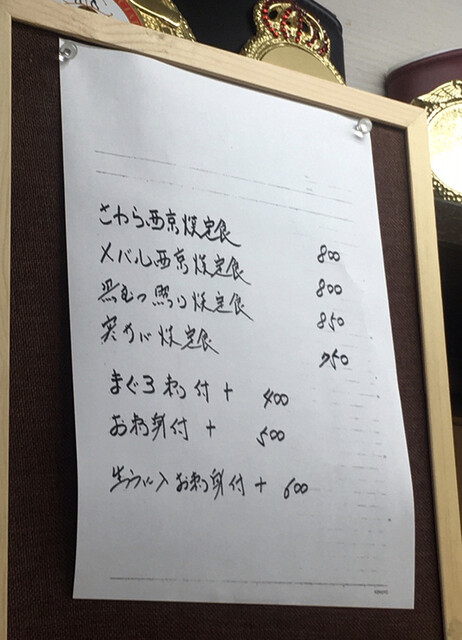 さわら西京焼定食 800
メバル西京焼定食 800
黒むつ照り焼定食 850
実カバ焼定食 750
まぐろ刺付+ 400
お刺身付+ 500
生うに入お刺身付+ 600